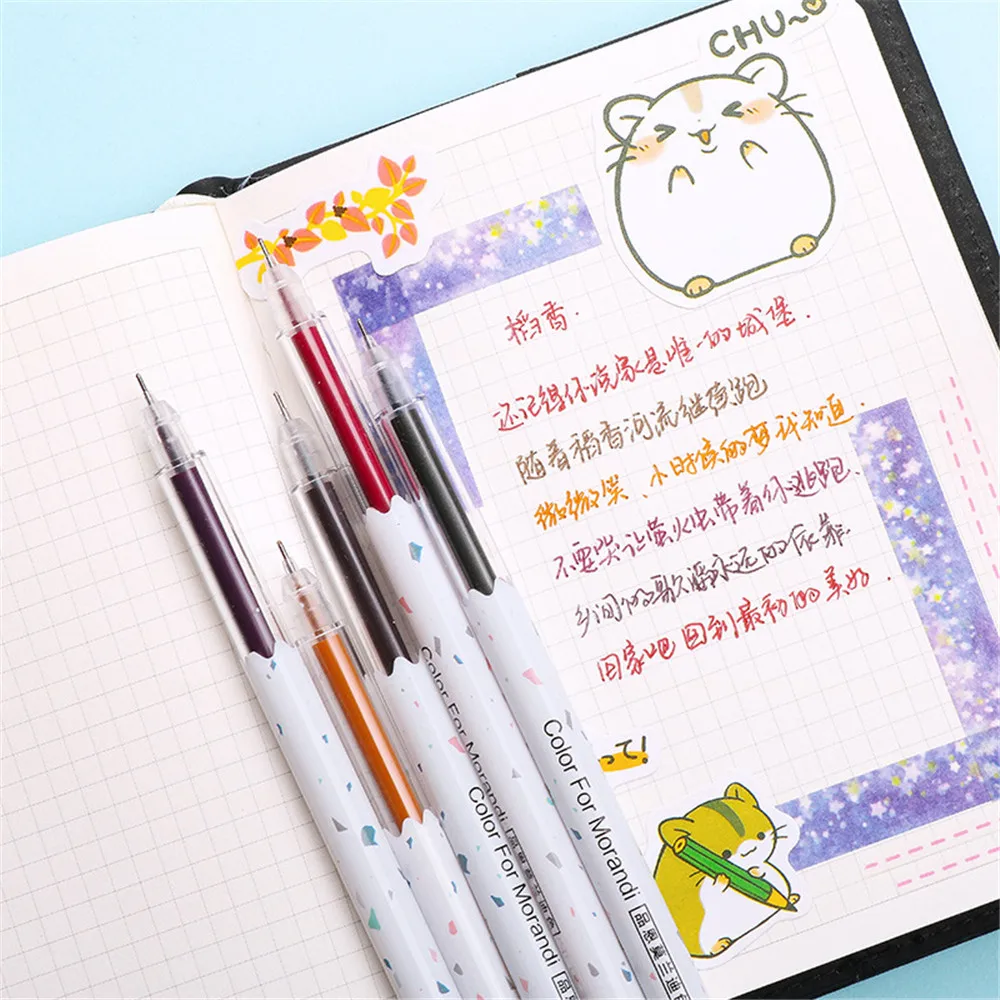 CHU~
稻香.
还记得你说家是唯一的城堡.
随着稻香河流继续跑
微微笑、小时候的梦我知道.
不要哭让萤火虫带着你逃跑.
乡间的歌谣永远的依靠.
回家吧 回到最初的美好.
って!
Color For Morandi
Color For Morandi
Color For Morandi